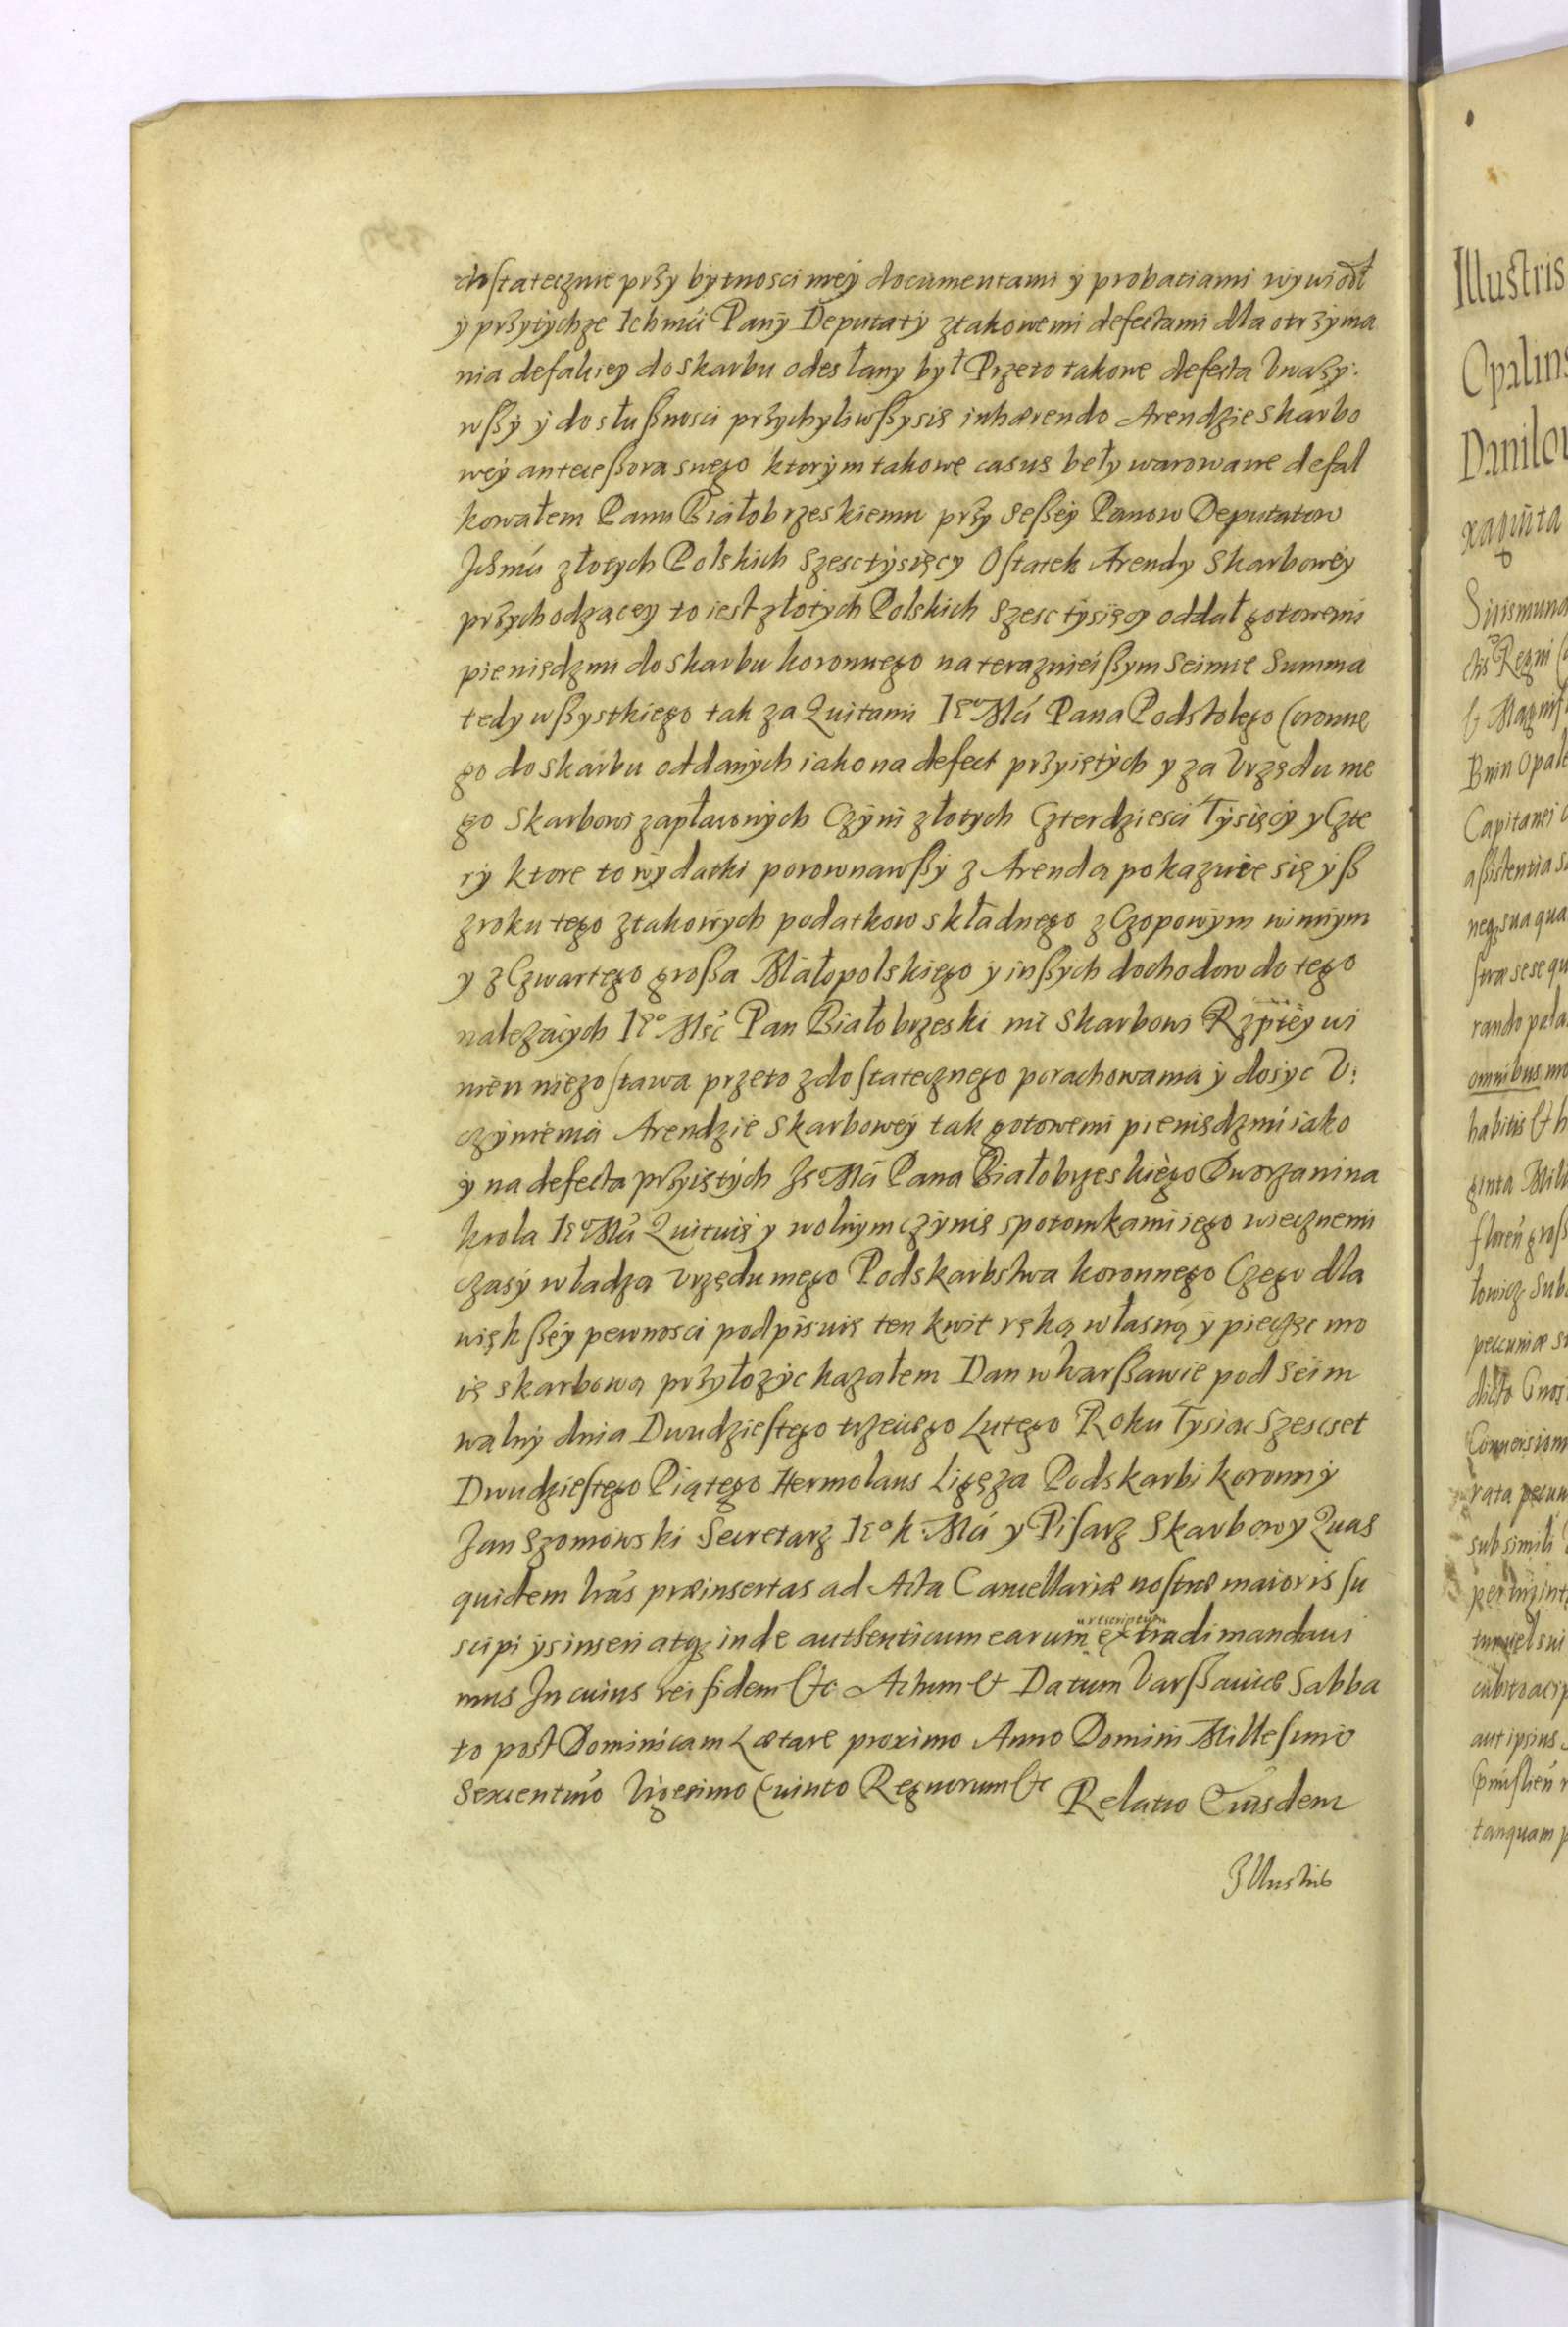 dostatecznie przy bytnosci mey documentami y probatiami wywiodł
y przytychze Ichmći Pany Deputaty ztakowemi defectami dla otrzyma
nia defalkiey do skarbu odesłany był Przeto takowe defecta Uwazy:
wßy y do słußnosci przychyliwßysię inhærendo Arendzie skarbo
wey anteceßora swego ktorym takowe casus beły warowane defal
kowałem Panu Białobrzeskiemu przy Seßey Panow Deputatow
Ichmći złotych Polskich Szesc tysięcy Ostatek Arendy Skarbowey
przychodzącey to iest złotych Polskich Szesc tysięcy oddał gotowemi
pieniędzmi do skarbu koronnego na teraznieißym Seimie Summa
tedy wßystkiego tak za Quitami Ieº Mći Pana Podstolego Coronne
go do skarbu oddanych iako na defect przyiętych y za Urzędu me
go Skarbowi zapłaconych Czyni złotych Czterdziesci Tysięcy y Czte
ry ktore to wydatki porownawßy z Arendą pokazuie się yß
zroku tego ztakowych podatkow składnego z Czopowym winnym
y z Czwartego großa Małopolskiego y inßych dochodow do tego
nalezących Ieº Msć Pan Białobrzeski nic Skarbowi Rzptey wi
nien niezostawa przeto zdostatecznego porachowania y dosyc U:
czynienia Arendzie Skarbowey tak gotowemi pieniędzmi iako
y na defecta przyiętych Ieº Mći Pana Białobrzeskiego Dworzanina
krola Ieº Mći Quituię y wolnym czynię spotomkami iego wiecznemi
czasy władzą Urzędu mego Podskarbstwa koronnego Czego dla
więkßey pewnosci podpisuię ten kwit ręką własną y pieczęc mo
ię skarbową przyłozyc kazałem Dan w Warßawie pod Seim
walny dnia Dwudziestego trzeciego Lutego Roku Tysiąc Szescset
Dwudziestego Piątego Hermolaus Ligęza Podskarbi koronny
Jan Szomowski Secretarz Ieº k. Mći y Pisarz Skarbowy Quas
quidem lras præinsertas ad Acta Cancellariæ nostræ maioris su
scipi ysinseri atq inde authenticum earum rescriptum extradi mandaui
mus In cuius rei fidem &c Actum & Datum Varßauiæ Sabba
to post Dominicam Lætare proximo Anno Domini Millesimo
Sexcentmo Vigesimo Quinto Regnorum &c Relatio Eiusdem
Illustris